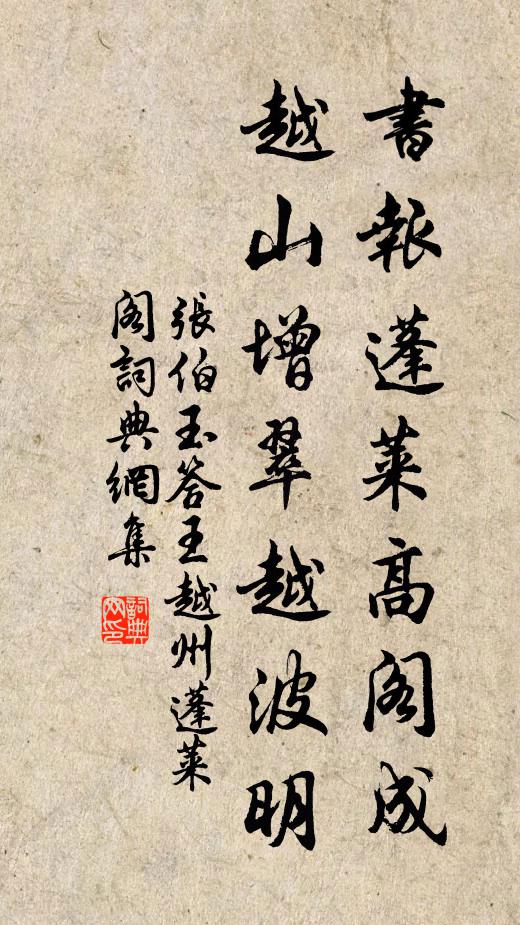 書報蓬萊高閣成
越山增翠越波明
張伯玉答王越州蓬萊
閣詞典網集
詞典
网印